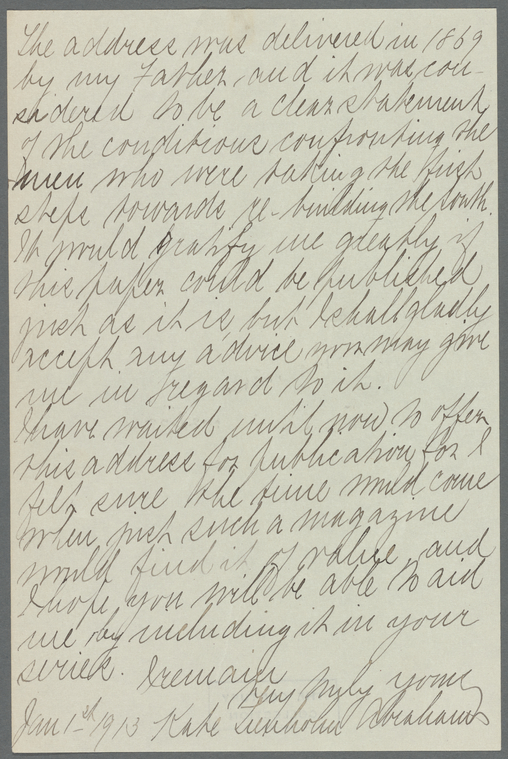 The address was delivered in 1869
by my Father, and it was con-
sidered to be a clear statement
of the conditions confronting the
men who were taking the first
steps towards re-building the South.
It would gratify me greatly if
this paper could be published
just as it is but I shall gladly
accept any advice you may give
me in regard to it.
I have waited until now to offer
this address for publication for I
felt sure the time would come
when just such a magazine
would find it of value and
I hope you will be able to aid
me by including it in your
series. I remain
Very truly yours
Jan 1st 1913 Kate Trenholm Abrahams